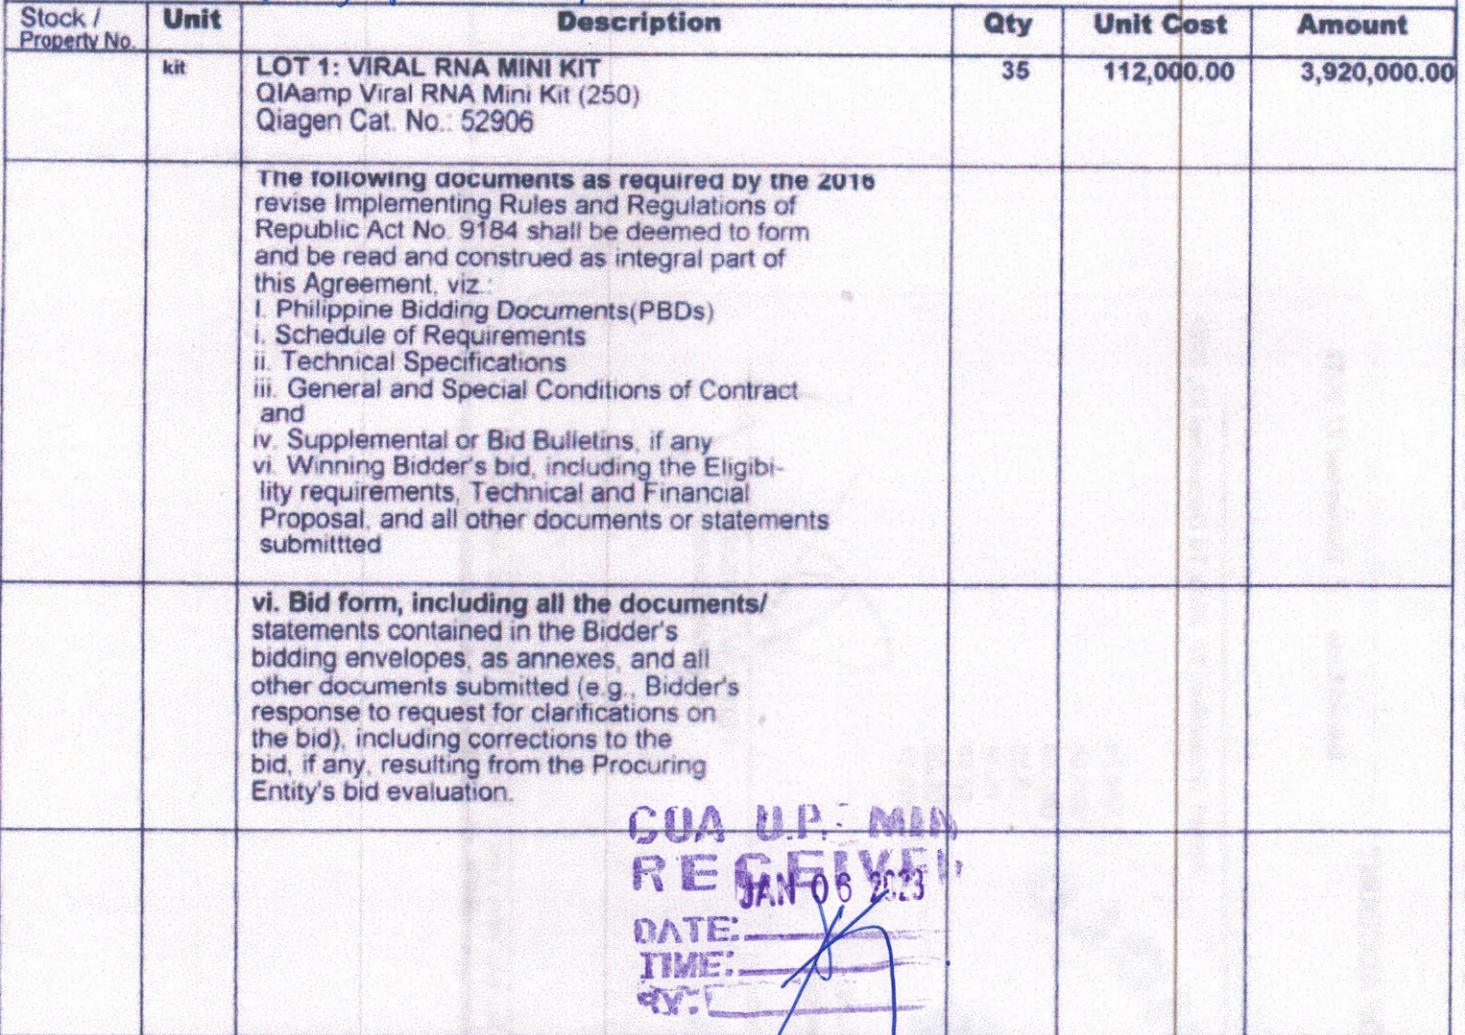 Stock / Unit Description Qty Unit Cost Amount
Property No.
kit LOT 1: VIRAL RNA MINI KIT 35 112,000.00 3,920,000.00
QIAamp Viral RNA Mini Kit (250)
Qiagen Cat. No.: 52906
The following documents as required by the 2016
revise Implementing Rules and Regulations of
Republic Act No. 9184 shall be deemed to form
and be read and construed as integral part of
this Agreement, viz.:
I. Philippine Bidding Documents(PBDs)
i. Schedule of Requirements
ii. Technical Specifications
iii. General and Special Conditions of Contract
and
iv. Supplemental or Bid Bulletins, if any
vi. Winning Bidder's bid, including the Eligibi-
lity requirements, Technical and Financial
Proposal, and all other documents or statements
submittted
vi. Bid form, including all the documents/
statements contained in the Bidder's
bidding envelopes, as annexes, and all
other documents submitted (e.g., Bidder's
response to request for clarifications on
the bid), including corrections to the
bid, if any, resulting from the Procuring
Entity's bid evaluation.
COA U.P. MIN
RECEIVED
JAN 06 2023
DATE:
TIME:
BY: